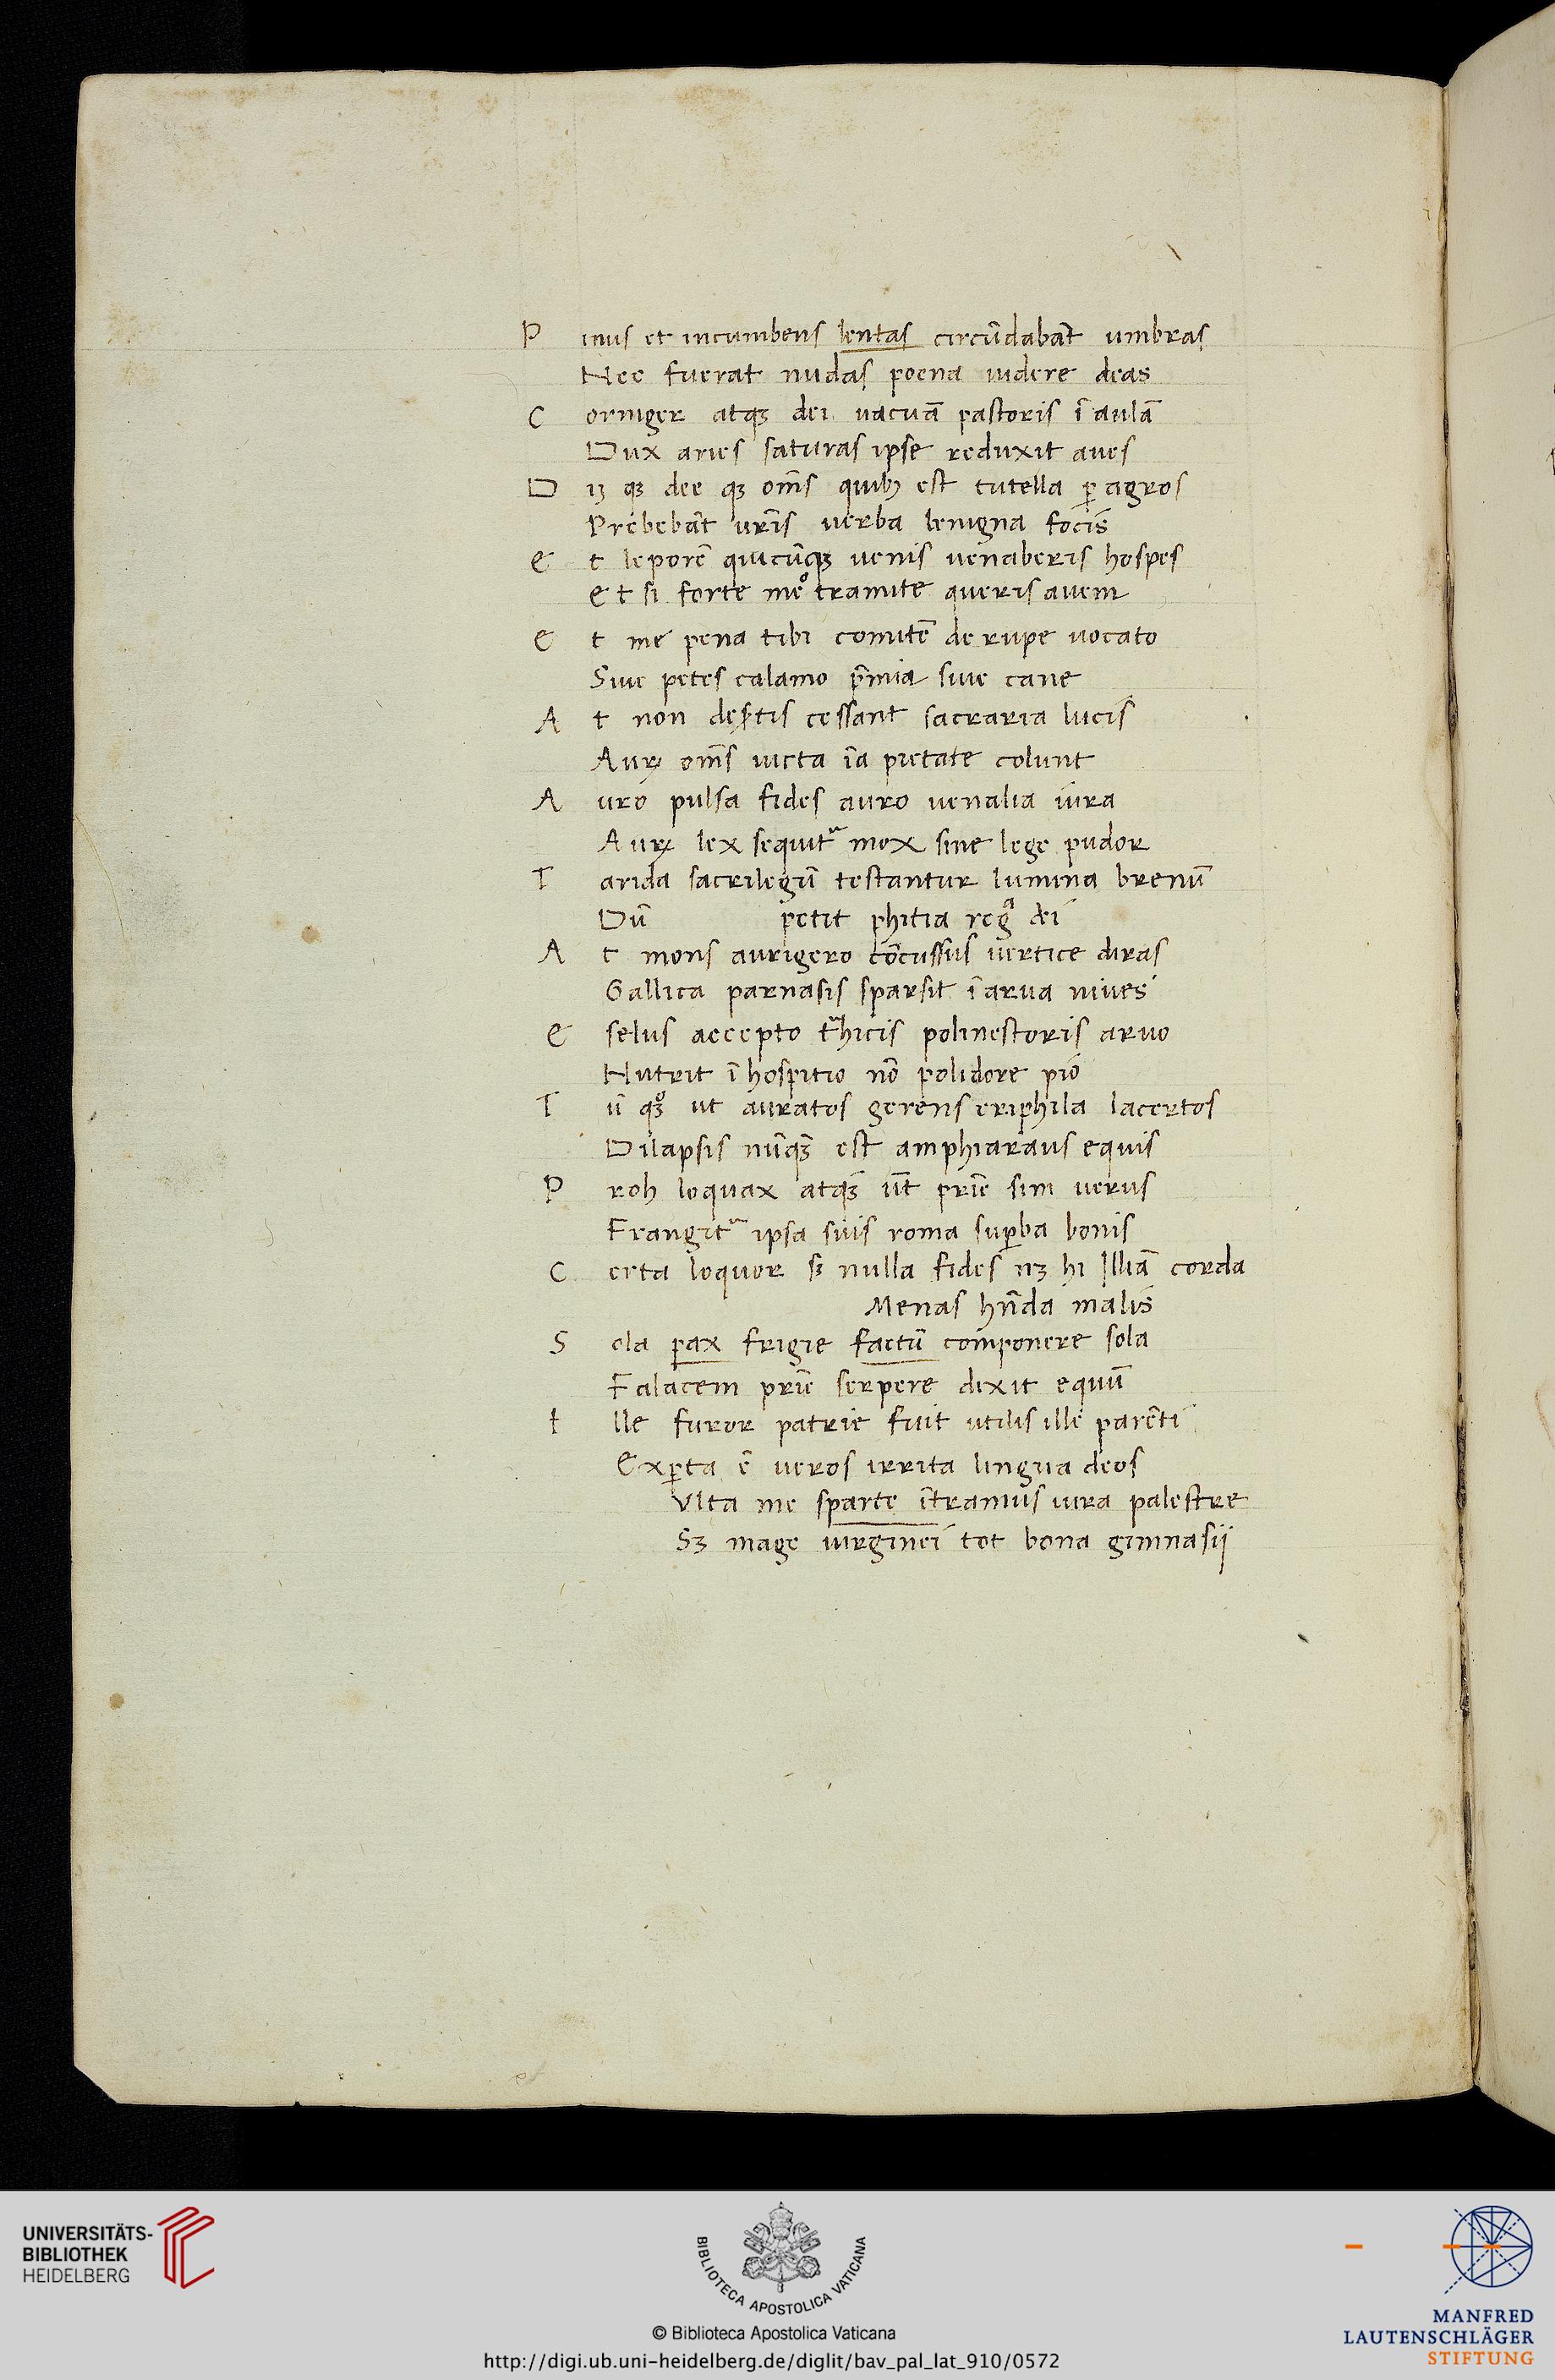 P inus et incumbens lentas circūdabāt umbras
Nec fuerat nudas poena uidere deas
C orniger atqꝫ dei uacuā pastoris ī aulā
Dux aries saturas ipse reduxit aues
D ıȝ qꝫ dee qꝫ om̄s quibꝫ est tutella ꝑ agros
Prebebāt ur̄is uerba benigna focis
E t leporē quicūqꝫ uenis uenaberis hospes
Et si forte meͦ tramite queris auem
E t me pena tibi comitē de rupe uocato
Siue petes calamo p̄mia siue cane
A t non des̄tis cessant sacraria lucis
Aurꝫ om̄s uicta īa pietate colunt
A uro pulsa fides auro uenalia iura
Aurꝫ lex sequit᷑ mox sine lege pudor
T orida sacrilegū testantur lumina brenū
Dū petit phitia regᷓ dei
A t mons aurigero cōcussus uertice diras
Gallica parnasis sparsit ī arua niues
E selus accepto tᷓhicis polinestoris aruo
Nutrit ī hospitio nō polidore pio
T ū qꝫͦ ut auratos gerens eriphila lacertos
Dilapsis nūqꝫ̄ est amphiaraus equis
P roh loquax atqꝫ̄ ūt pr̄ie sim uerus
Frangit᷑ ipsa suis roma suꝑba bonis
C erta loquor sꝫ nulla fides nꝫ hi Illiā corda
Menas hn̄da malis
S ola ꝑax frigie factū componere sola
Falacem pr̄ie serpere dixit equū
I lle furor patrie fuit utilis ille parēti
Exꝑta ē ueros irrita lingua deos
Vlta me sparte ītramus iura palestre
Sꝫ mage uirginei tot bona gimnasii
UNIVERSITÄTS-
BIBLIOTHEK
HEIDELBERG
BIBLIOTECA APOSTOLICA VATICANA
© Biblioteca Apostolica Vaticana
http://digi.ub.uni-heidelberg.de/diglit/bav_pal_lat_910/0572
MANFRED
LAUTENSCHLÄGER
STIFTUNG